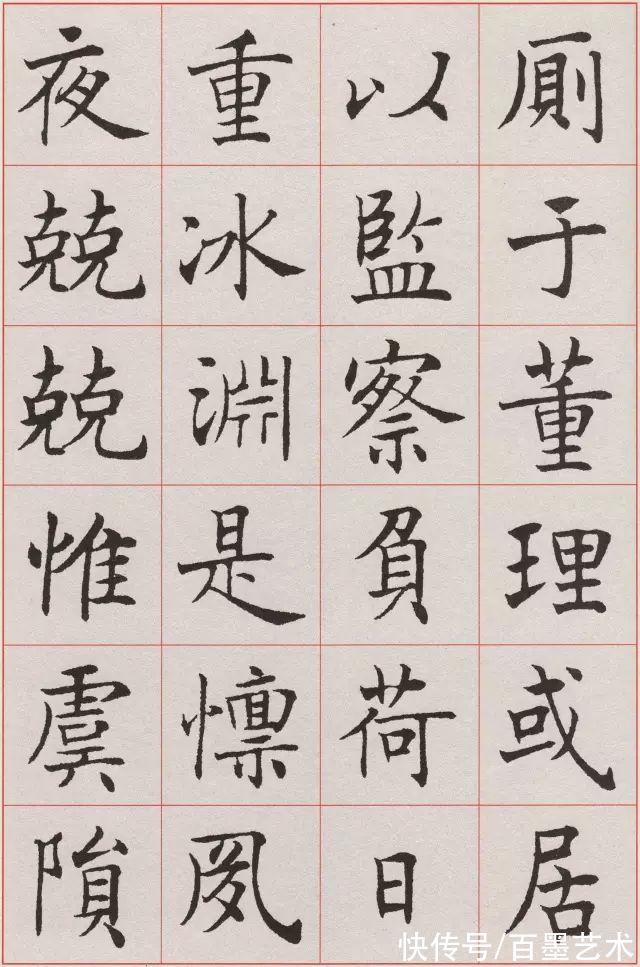 厠于董理或居
以監察負荷日
重冰淵是懔夙
夜兢兢惟虞隕
快传号/百墨艺术